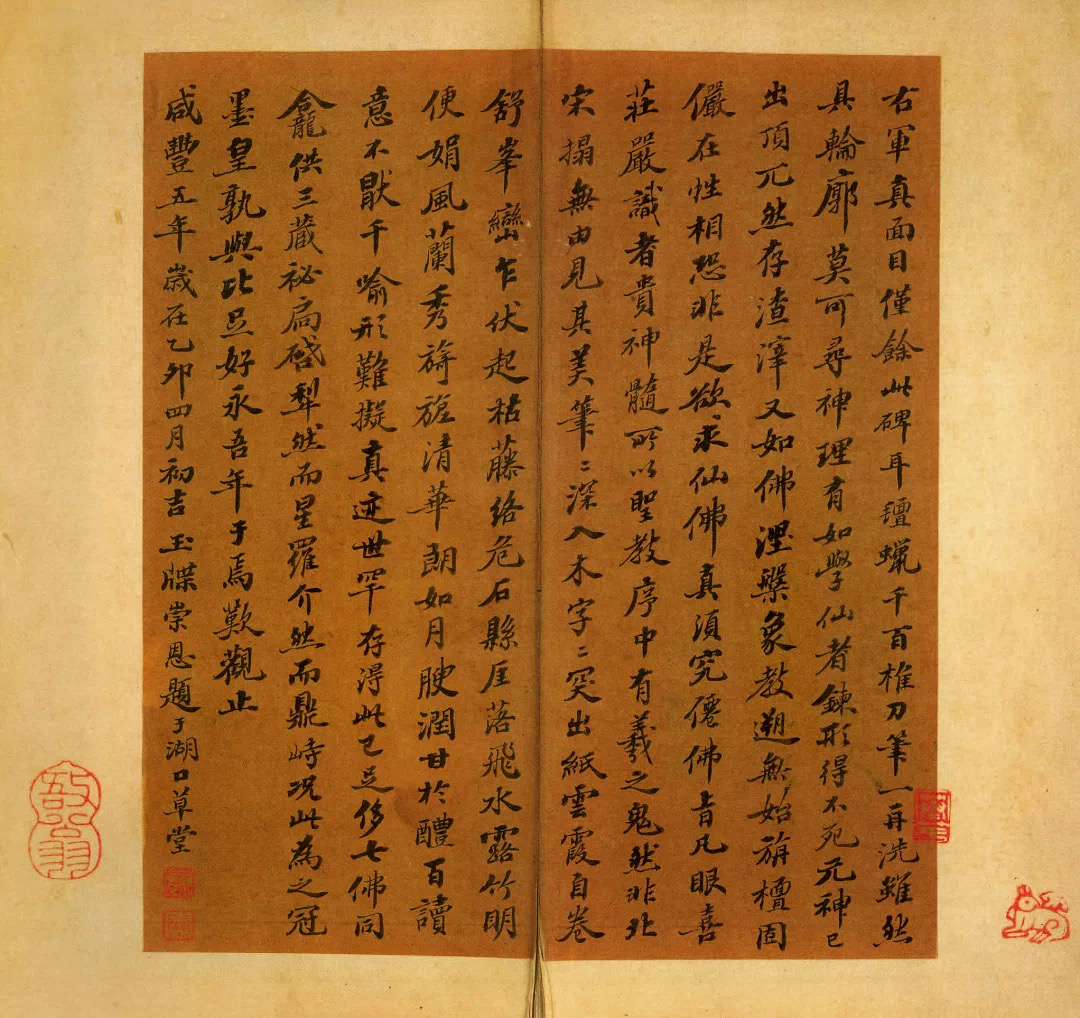 右軍真面目僅餘此碑耳氊蠟千百椎刀筆一再洗雖然
具輪廓莫可尋神理有如學仙者鍊形得不死元神已
出頂兀然存渣滓又如佛涅槃象教遡無始旃檀固
儼在性相恐非是欲求仙佛真須究僊佛旨凡眼喜
莊嚴識者貴神髓所以聖教序中有羲之鬼然非北
宋搨無由見其美筆〻深入木字〻突出紙雲霞自卷
舒峯巒乍伏起枯藤絡危石縣厓落飛水露竹明
便娟風蘭秀旖旎清華朗如月腴潤甘於醴百讀
意不猒千喻形難擬真迹世罕存得此已足侈七佛同
龕供三藏祕扃啟犁然而星羅介然而鼎峙況此為之冠
墨皇孰與比足好永吾年于焉歎觀止
咸豐五年歲在乙卯四月初吉玉牒崇恩題于湖口草堂